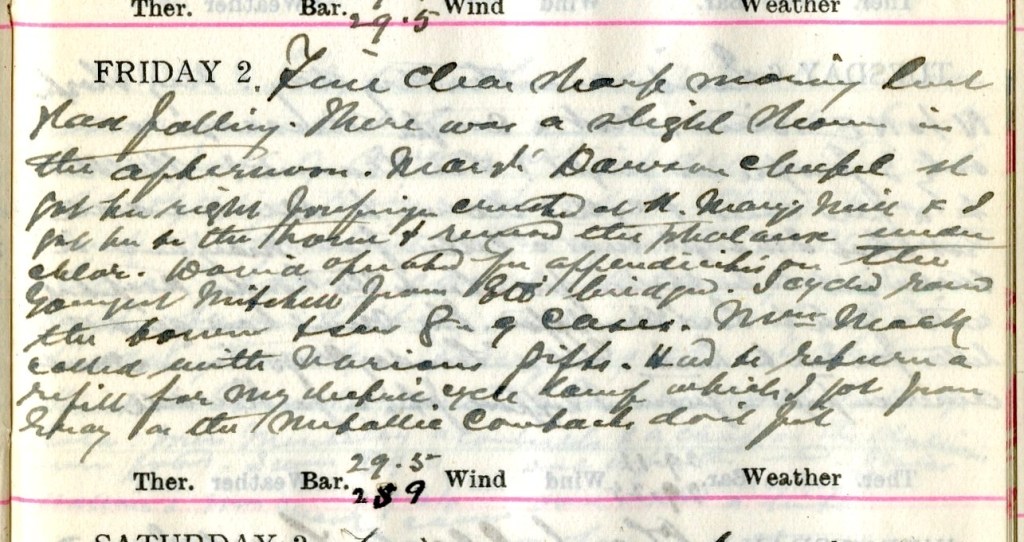 Ther. Bar. 29.5 Wind Weather
FRIDAY 2. Fine clear sharp morning but
glass falling. There was a slight shower in
the afternoon. Dawson Chapel St
got her right forefinger crushed at St. Mary's Mill & I
got her to the home & removed the phalanx under
chlor. David operated for appendicitis on the
youngest Mitchell from bridge. I cycled round
the town & saw 8 or 9 cases. Mrs Mack
called with various gifts. Had to return a
refill for my electric cycle lamp which I got from
as the metallic contacts don't fit
Ther. Bar. 29.5 Wind Weather
289
SATURDAY 3